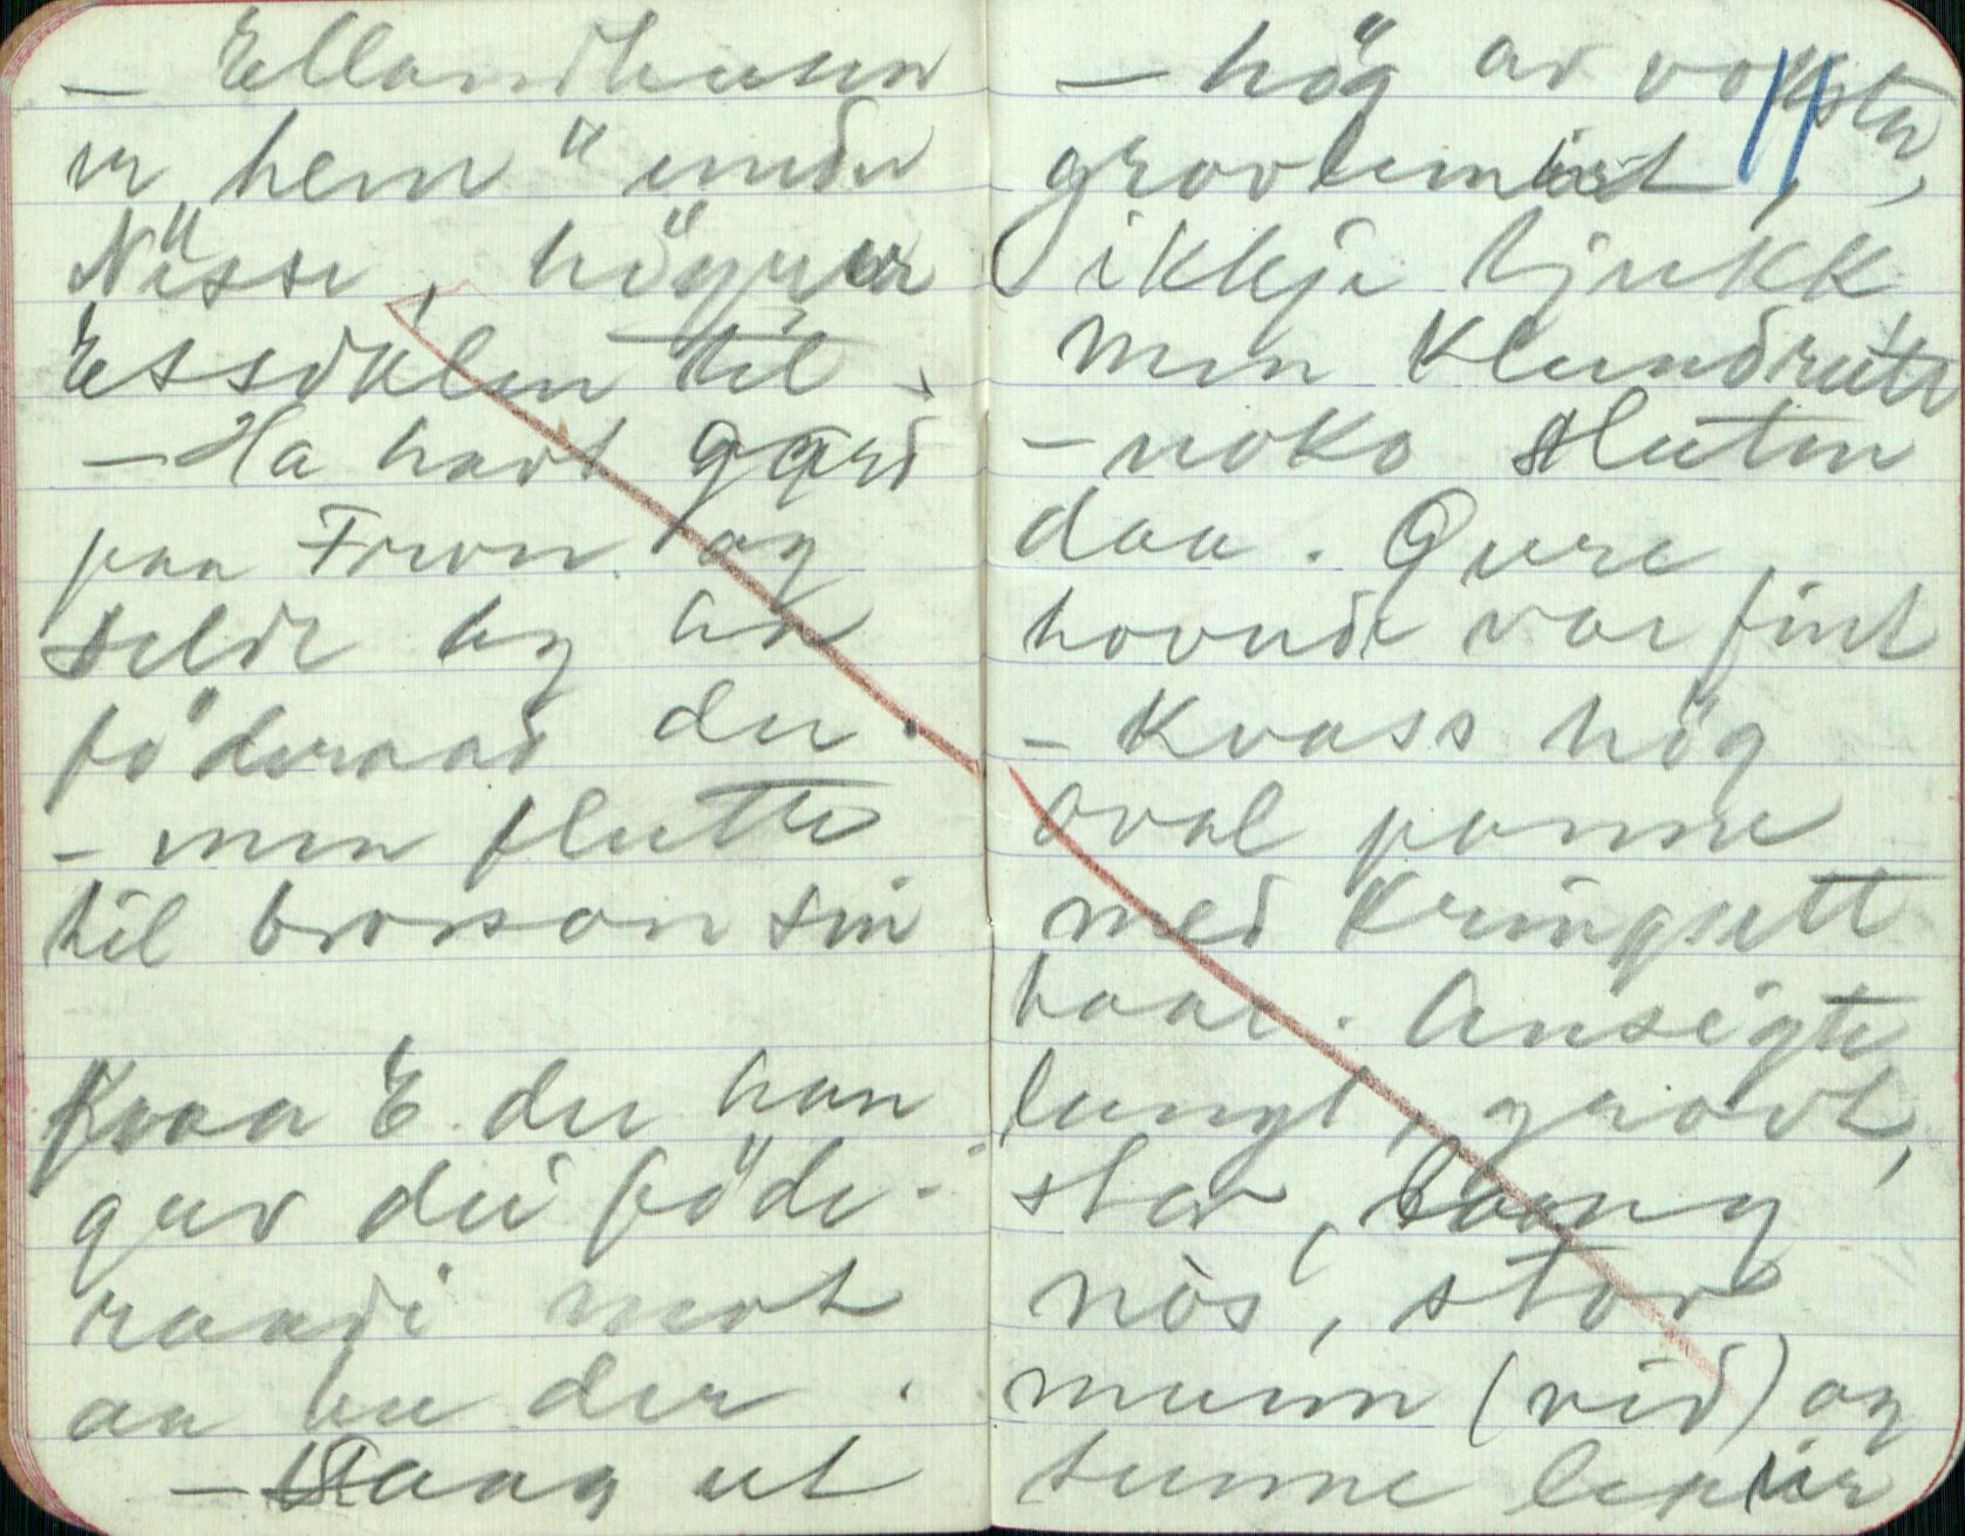 — Ellandhuun
er hem" under
Nässe, högre er
Essdalen til
— Ha havt gard
paa Fron og
selde og ha
föderaad der.
– men flutte
til brorson sin
Fraa E. der han
gav dei föde-
raadi mot
aa bu der.
— Saag ut
— hög av vokster,
grovlemat,
ikkje tjukk
men klundrute
– noko sluten
daa. Qure
hovude var fint
– Kvass hög
oval panne
med Kringsett
haar. Ansigte
langt, grovt,
stor, lang
nòs, stor
munn (vid) og
tunne lepur
11